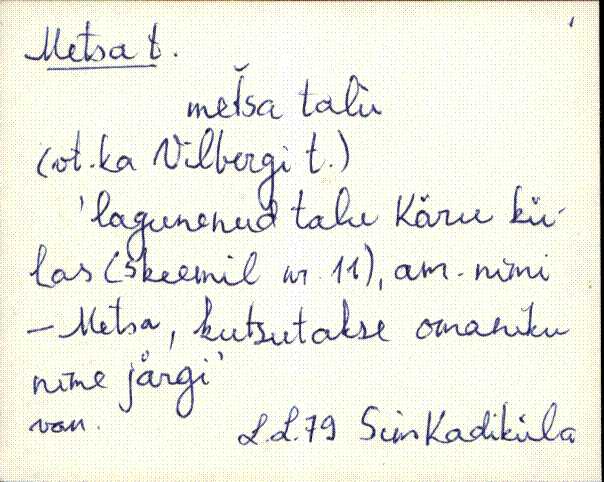 Metsa t.
metsa talù
(vt. ka Vilbergi t.)
'lagunenud talu Käru kü-
las (skeemil nr. 11), am. nimi
– Metsa, kutsutakse omaniku
nime järgi'
van.
L.L.79 SimKadiküla